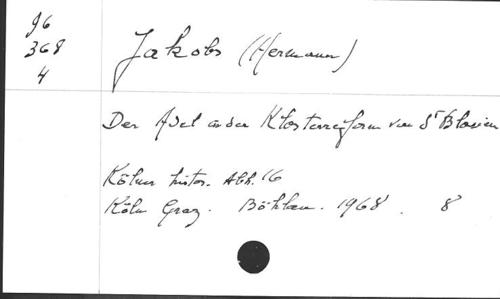 96
368
4
Jakobs (Hermann)
Der Adel in der Klosterreform von St Blasien
Kölner histor. Abh. 16
Köln Graz. Böhlau. 1968. 8